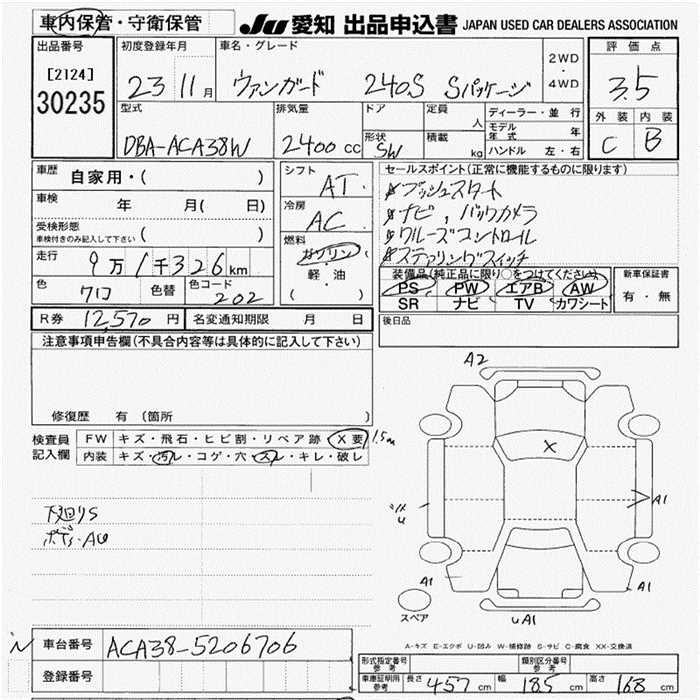 車内保管・守衛保管
JU 愛知 出品申込書 JAPAN USED CAR DEALERS ASSOCIATION
出品番号
[2124]
30235
初度登録年月
23 11月
車名・グレード
ヴァンガード 240S Sパッケージ
2WD
・
4WD
評価点
3.5
外装 内装
C B
型式
DBA-ACA38W
排気量
2400 cc
ドア
形状
SW
定員
人
積載
kg
ディーラー・並行
モデル年式 年
ハンドル 左・右
車歴
自家用・( )
車検
年 月( 日)
受検形態
車検付きのみ記入して下さい ( )
走行
9万1千326km
色
クロ
色替
色コード
202
シフト
AT
冷房
AC
燃料
ガソリン
軽・油
( )
セールスポイント(正常に機能するものに限ります)
プッシュスタート
ナビ、バックカメラ
クルーズコントロール
ステアリングスイッチ
装備品(純正品に限り○をつけてください)
PS PW エアB AW
SR ナビ TV カワシート
新車保証書
有・無
R券 12,570円
名変通知期限 月 日
後日品
注意事項申告欄(不具合内容等は具体的に記入して下さい)
修復歴 有(箇所 )
検査員
記入欄
FW キズ・飛石・ヒビ割・リペア跡 X要 1.5m
内装 キズ・汚レ・コゲ・穴・スレ・キレ・破レ
下廻りS
ボデー・AU
A2
X
U
A1
A1
A1
UA1
スペア
A-キズ E-エクボ U-凹み W-補修跡 S-サビ C-腐食 XX-交換済
車台番号 ACA38-5206706
登録番号
型式指定番号
参考
類別区分番号
参考
車庫証明用
参考
長さ 457cm 幅 185cm 高さ 168cm